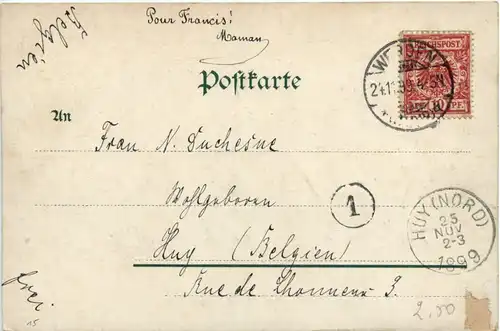 Belgien
Pour Francis!
Maman
Postkarte
REICHSPOST
10 PF.
WERDEN
24.11.99
An
Frau N. Duchesne
Wohlgeboren
1
Huy (Belgien)
HUY (NORD)
25
NOV
2-3
1899
Rue de 3.
frei
15
2.50